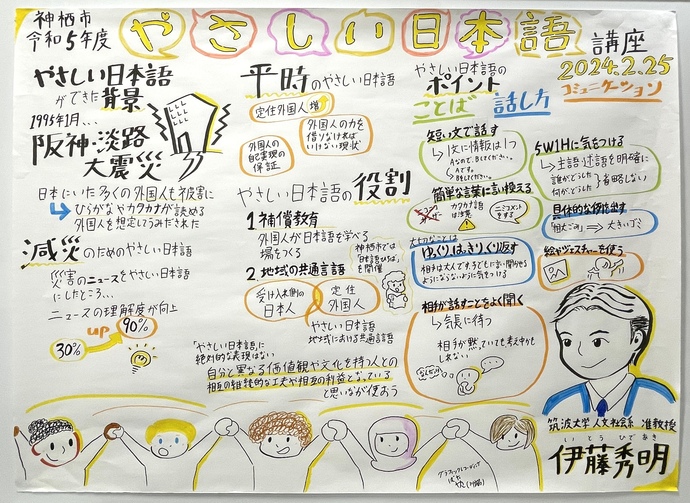 神栖市
令和5年度
やさしい日本語 講座
2024.2.25
やさしい日本語
ができた背景
1995年1月...
阪神・淡路
大震災
日本にいた多くの外国人も被害に
ひらがなやカタカナが読める
外国人を想定してうみだされた
減災のためのやさしい日本語
災害のニュースをやさしい日本語
にしたところ...
ニュースの理解度が向上
30%
up
90%
平時のやさしい日本語
定住外国人増
外国人の
自己実現の
保証
外国人の力を
借りなければ
いけない現状
やさしい日本語の役割
1 補償教育
外国人が日本語を学べる
場をつくる
神栖市では
を開催
2 地域の共通言語
受け入れ側の
日本人
定住
外国人
やさしい日本語
地域における共通言語
「やさしい日本語」に
絶対的な表現はない
自分と異なる価値観や文化を持つ人との
相互の継続的な工夫や相互の利益となっている
と思いながら使おう
やさしい日本語の
ポイント
コミュニケーション
ことば 話し方
短い文で話す
1文に情報は1つ
簡単な言葉に言い換える
カタカナ語
は注意
大切なことは
ゆっくり、はっきり、くり返す
相手は大人です。子どもに言い聞かせる
ようにならないように気をつける
相手が話すことをよく聞く
気長に待つ
相手が黙っていても考え中かも
しれない
5W1Hに気をつける
主語・述語を明確に
誰がどうした
何がどうした
省略しない
具体的な例を出す
"粗大ごみ" → 大きいゴミ
絵やジェスチャーを使う
筑波大学人文社会系 准教授
いとうひであき
伊藤秀明
グラフィックレコーディング